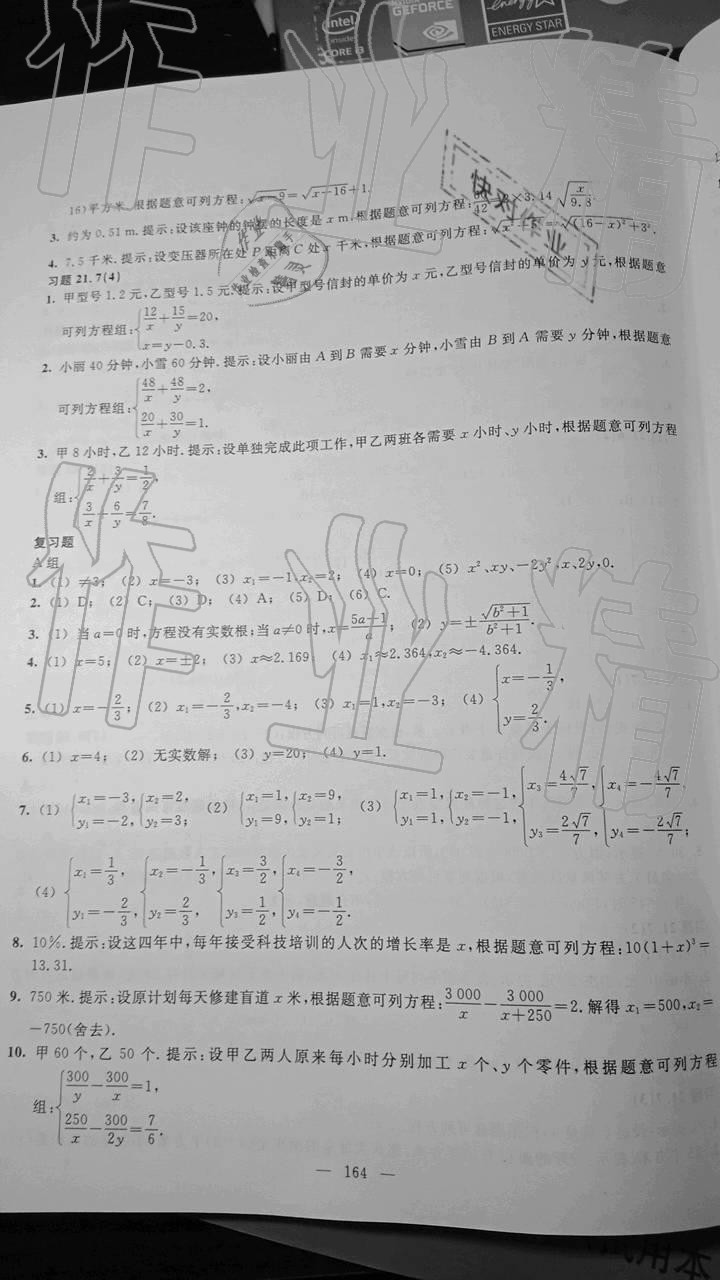 intel
inside
CORE i3
GEFORCE
NVIDIA
ENERGY STAR
16)平方米.根据题意可列方程:√(x-9)=√(x-16)+1.
3. 约为0.51 m.提示:设该座钟的钟摆的长度是x m.根据题意可列方程: ×3.14√(x/9.8)
4. 7.5千米.提示:设变压器所在处P距离C处x千米,根据题意可列方程: =√((16-x)²+3²).
习题 21.7(4)
1. 甲型号1.2元,乙型号1.5元.提示:设甲型号信封的单价为x元,乙型号信封的单价为y元,根据题意
可列方程组:{12/x+15/y=20,
x=y-0.3.
2. 小丽40分钟,小雪60分钟.提示:设小丽由A到B需要x分钟,小雪由B到A需要y分钟,根据题意
可列方程组:{48/x+48/y=2,
20/x+30/y=1.
3. 甲8小时,乙12小时.提示:设单独完成此项工作,甲乙两班各需要x小时、y小时,根据题意可列方程
组:{2/x+3/y=1/2,
3/x+6/y=7/8.
复习题
A组
1. (1) ≠3; (2) x=-3; (3) x₁=-1,x₂=2; (4) x=0; (5) x²、xy、-2y²,x、2y,0.
2. (1) D; (2) C; (3) D; (4) A; (5) D; (6) C.
3. (1) 当a=0时,方程没有实数根;当a≠0时,x=(5a-1)/a; (2) y=±√(b²+1)/(b²+1).
4. (1) x=5; (2) x=±2; (3) x≈2.169; (4) x₁≈2.364,x₂≈-4.364.
5. (1) x=-2/3; (2) x₁=-2/3,x₂=-4; (3) x₁=1,x₂=-3; (4) {x=-1/3, y=2/3.
6. (1) x=4; (2) 无实数解; (3) y=20; (4) y=1.
7. (1) {x₁=-3, y₁=-2, {x₂=2, y₂=3; (2) {x₁=1, y₁=9, {x₂=9, y₂=1; (3) {x₁=1, y₁=1, {x₂=-1, y₂=-1, {x₃=4√7/7, y₃=2√7/7, {x₄=-4√7/7, y₄=-2√7/7;
(4) {x₁=1/3, y₁=-2/3, {x₂=-1/3, y₂=2/3, {x₃=3/2, y₃=1/2, {x₄=-3/2, y₄=-1/2.
8. 10%.提示:设这四年中,每年接受科技培训的人次的增长率是x,根据题意可列方程:10(1+x)³=
13.31.
9. 750米.提示:设原计划每天修建盲道x米,根据题意可列方程:3 000/x-3 000/(x+250)=2.解得x₁=500,x₂=
-750(舍去).
10. 甲60个,乙50个.提示:设甲乙两人原来每小时分别加工x个、y个零件,根据题意可列方程
组:{300/y-300/x=1,
250/x-300/2y=7/6.
— 164 —
试用本
作业精
作业精
快对作业